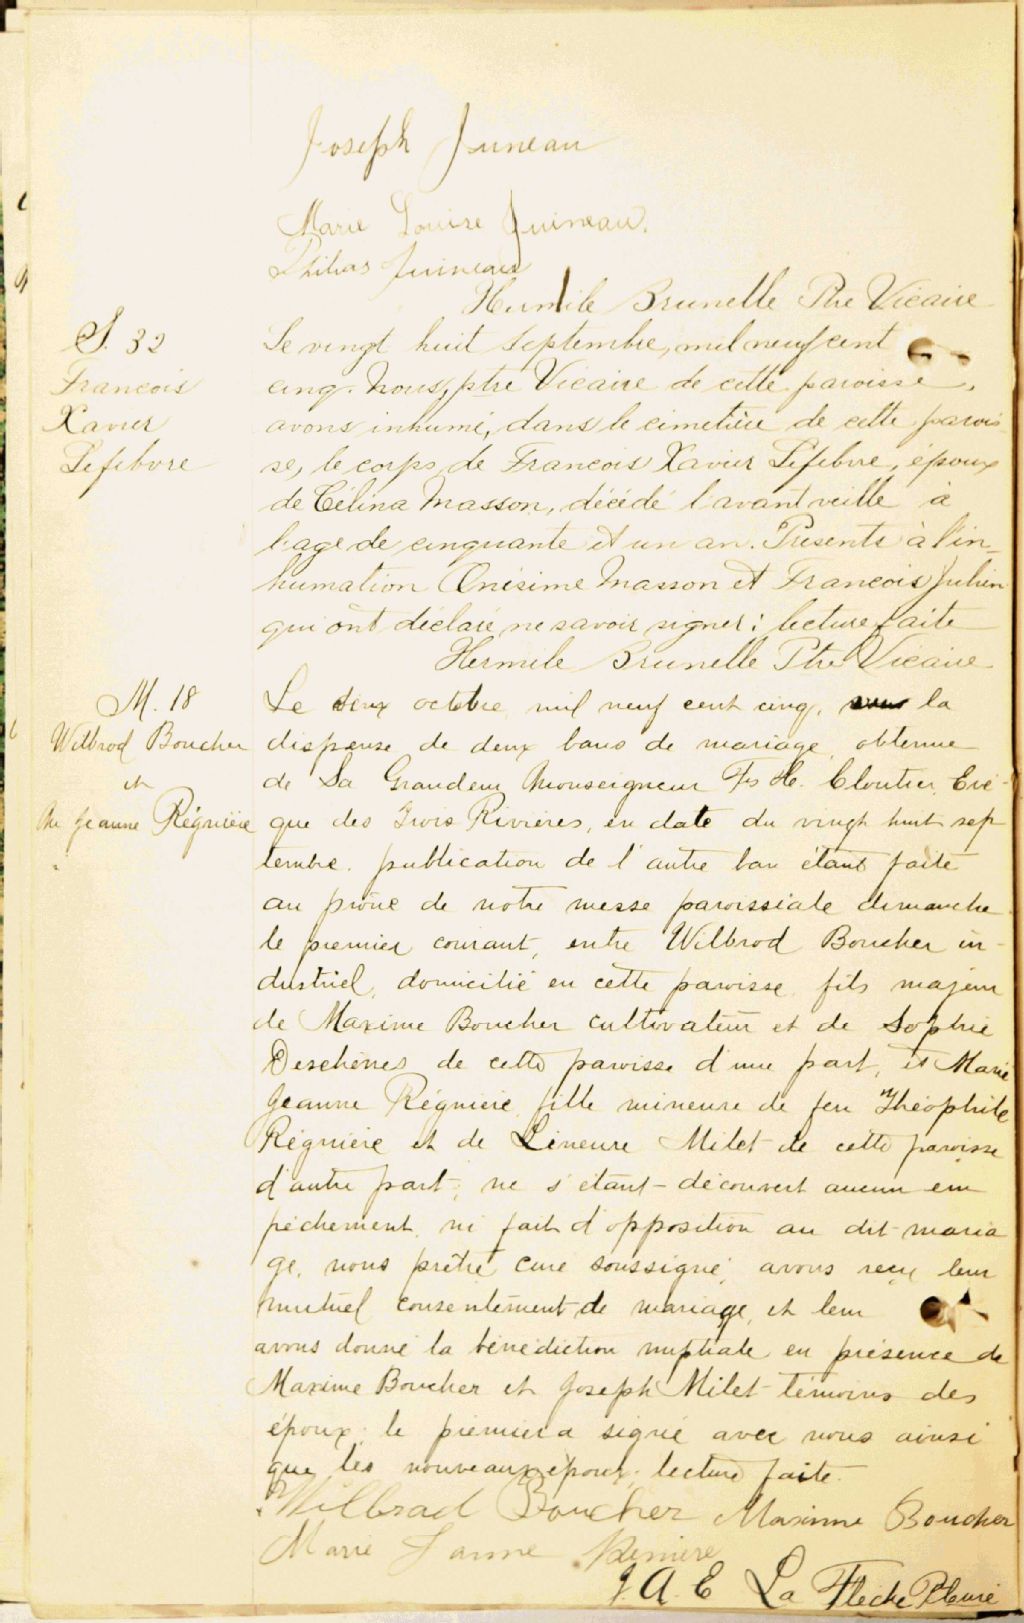 Joseph Juneau
Marie Louise Juineau.
Philias Juineau
Hermile Brunelle Ptre Vicaire
S. 32
François
Xavier
Lefebvre
Le vingt huit Septembre, mil neuf cent
cinq. Nous, ptre Vicaire de cette paroisse,
avons inhumé, dans le cimetière de cette parois-
se, le corps de Francois Xavier Lefebvre, époux
de Célina Masson, décédé l'avant veille à
l'age de cinquante et un an. Présents à l'in-
humation Onésime Masson et Francois Julien
qui ont déclaré ne savoir signer; lecture faite
Hermile Brunelle Ptre Vicaire
M. 18
Wilbrod Boucher
et
Me Jeanne Régnière
Le deux octobre mil neuf cent cinq, la
dispense de deux bans de mariage obtenue
de Sa Grandeur Monseigneur Fs H. Cloutier, Evê-
que des Trois Rivières, en date du vingt huit sep
tembre. publication de l'autre ban étant faite
au prône de notre messe paroissiale dimanche
le premier courant, entre Wilbrod Boucher in-
dustriel, domicilié en cette paroisse fils majeur
de Maxime Boucher cultivateur et de Sophie
Deschènes de cette paroisse d'une part, et Marie
Jeanne Régnière, fille mineure de feu Théophile
Régnière et de Lineure Milet de cette paroisse
d'autre part; ne s'étant découvert aucun em
pêchement, ni fait d'opposition au dit maria
ge, nous prêtre curé soussigné, avons reçu leur
mutuel consentement de mariage, et leur
avons donné la bénédiction nuptiale en présence de
Maxime Boucher et Joseph Milet témoins des
époux; le premier a signé avec nous ainsi
que les nouveaux époux; lecture faite.
Wilbrad Boucher Maxime Boucher
Marie Janne Reniere
J. A. E La Flèche Ptre curé